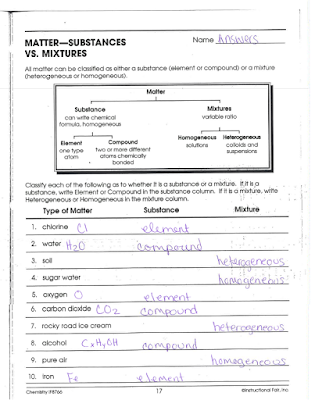 MATTER—SUBSTANCES
VS. MIXTURES
Name Answers
All matter can be classified as either a substance (element or compound) or a mixture
(heterogeneous or homogeneous).
Matter
Substance
can write chemical
formula, homogeneous
Mixtures
variable ratio
Element
one type
atom
Compound
two or more different
atoms chemically
bonded
Homogeneous
solutions
Heterogeneous
colloids and
suspensions
Classify each of the following as to whether it is a substance or a mixture. If it is a
substance, write Element or Compound in the substance column. If it is a mixture, write
Heterogeneous or Homogeneous in the mixture column.
Type of Matter Substance Mixture
1. chlorine Cl element
2. water H2O compound
3. soil heterogeneous
4. sugar water homogeneous
5. oxygen O element
6. carbon dioxide CO2 compound
7. rocky road ice cream heterogeneous
8. alcohol CxHyOH compound
9. pure air homogeneous
10. iron Fe element
Chemistry IF8766
17
©Instructional Fair, Inc.